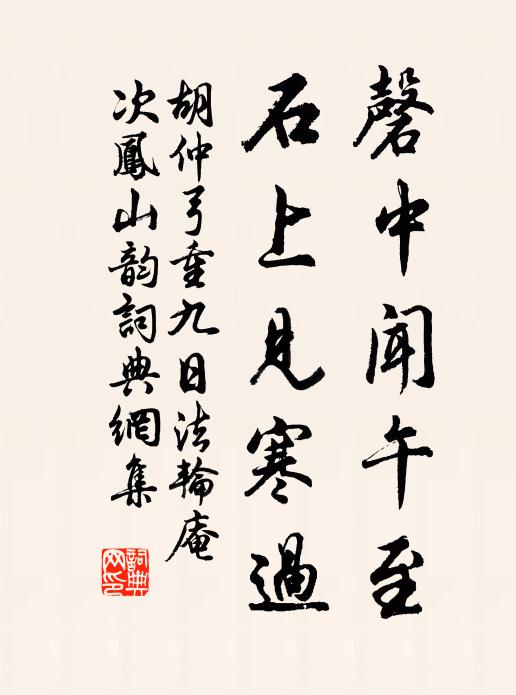 磬中闻午至
石上见寒過
胡仲弓重九日法輪庵
次鳳山韵詞典網集
詞典
网印